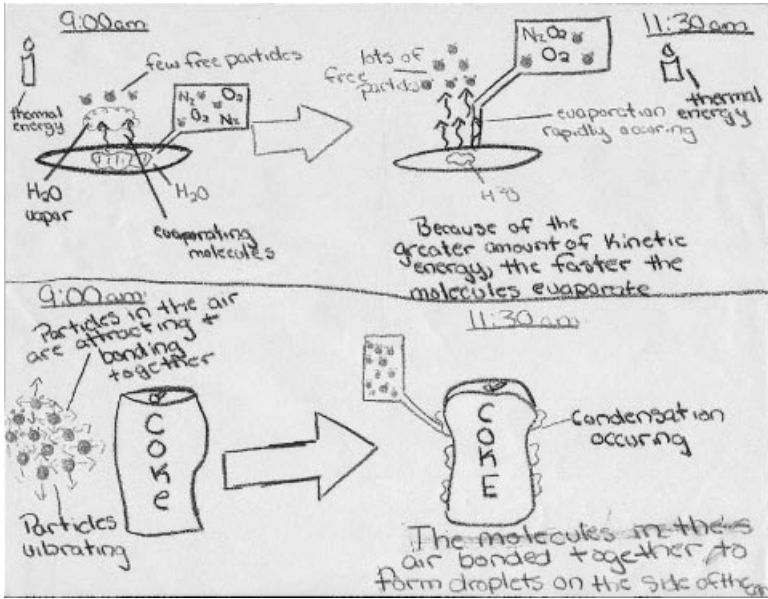 9:00am
few free particles
thermal
energy
N₂ O₂
O₂ N₂
H₂O
vapor
H₂O
evaporating
molecules
11:30am
lots of
free
particles
N₂ O₂
O₂
thermal
energy
evaporation
rapidly occuring
H₂O
Because of the
greater amount of kinetic
energy, the faster the
molecules evaporate
9:00am
Particles in the air
are attracting +
bonding
together
COKe
Particles
vibrating
11:30am
COKE
Condensation
occuring
The molecules in the
air bonded together to
form droplets on the side of the